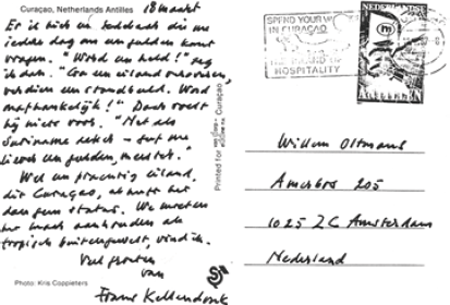 Curaçao, Netherlands Antilles
18 maart
Er is hier een die me
iedere dag om een gulden komt
vragen. "Word een held!" zeg
ik dan. "Een eiland
verdien een standbeeld. Word
onafhankelijk!" Daar voelt
hij niets voor. "Net als
Suriname – geef me
liever een gulden, meester."
Wel een prachtig eiland,
dit Curaçao, al heeft het
dan geen status. We moeten
het maar aanhouden als
tropisch buitengewest, vind ik.
Veel groeten
van
Frans Kellendonk
Photo: Kris Coppieters
Printed for
Curaçao
SPEND YOUR
IN CURAÇAO
HOSPITALITY
NEDERLANDSE
ANTILLEN
Willem Oltmans
Amerbos 205
1025 ZC Amsterdam
Nederland